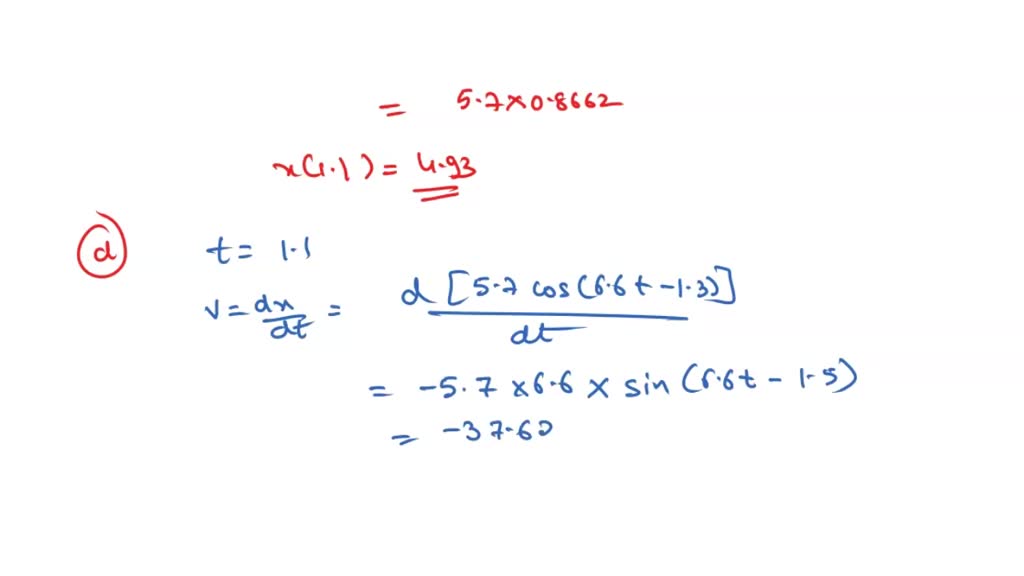 = 5.7×0.8662
x(1.1) = 4.93
d t = 1.1
v = dx/dt = d [5.7 cos(6.6t - 1.3)] / dt
= -5.7 × 6.6 × sin (6.6t - 1.5)
= -37.60